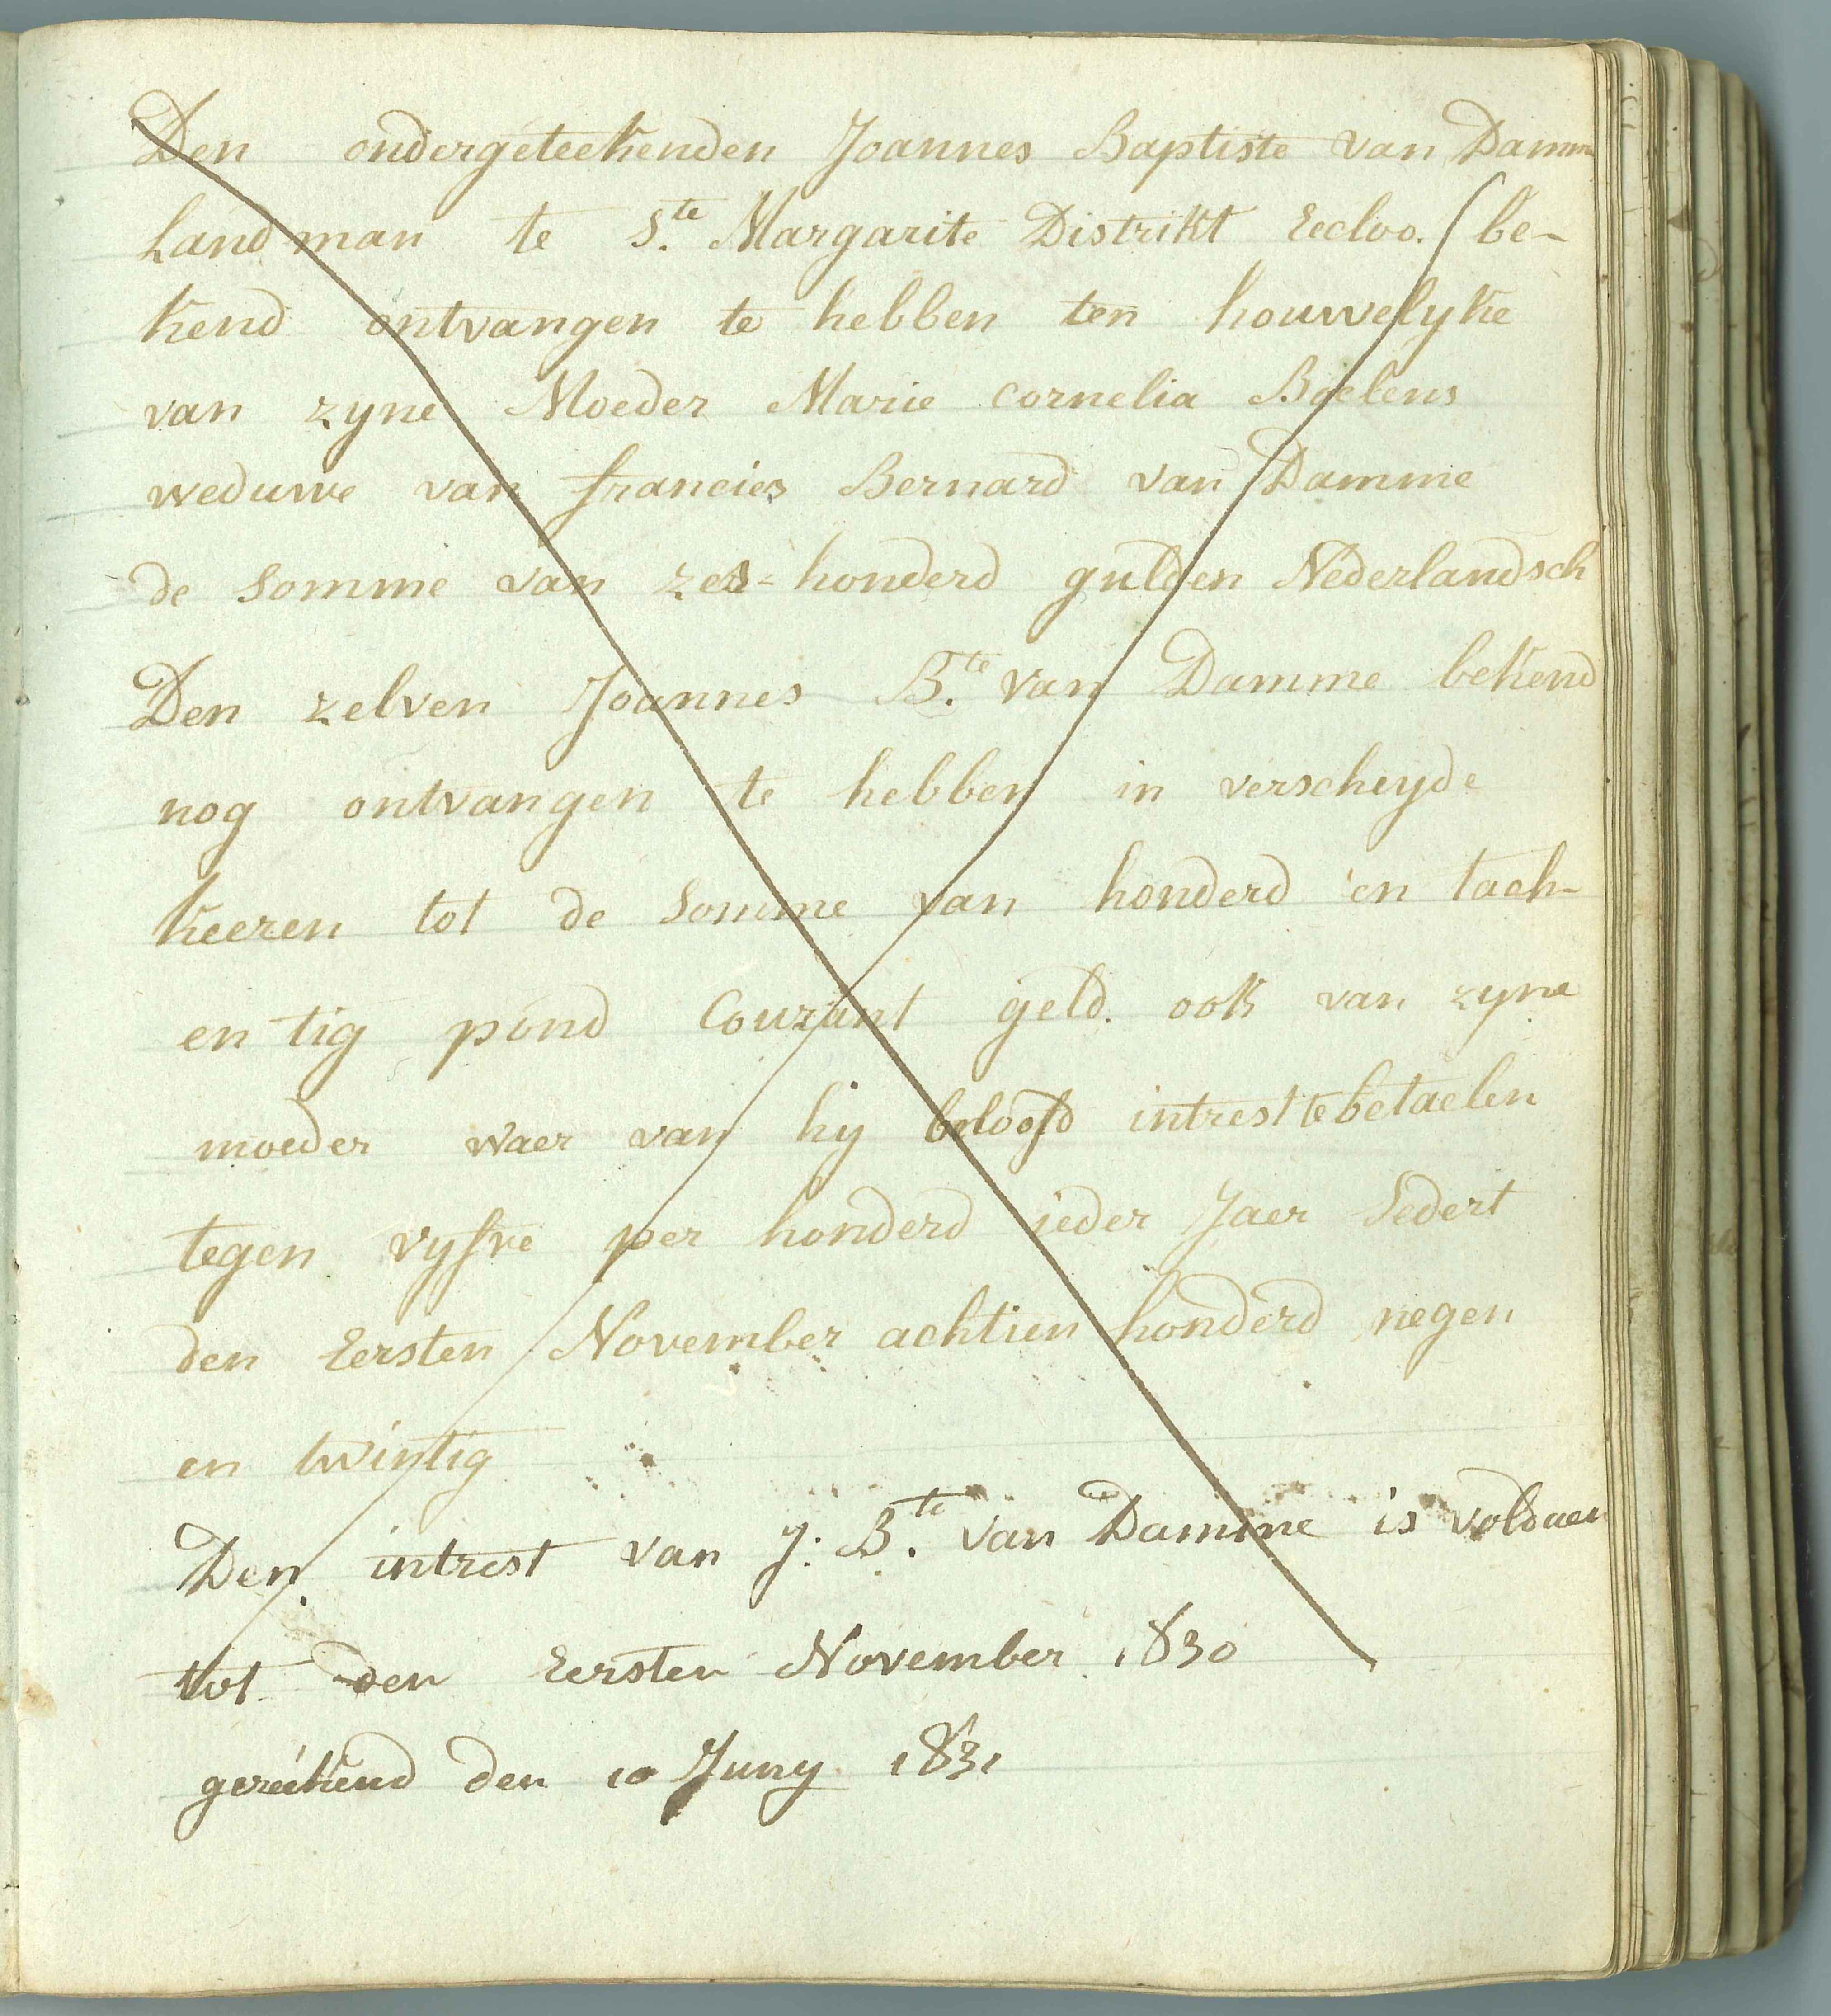 Den ondergeteekenden Joannes Baptiste van Damme
Landman te S.te Margarite Distrikt Eecloo. be-
kend ontvangen te hebben ten houwelyke
van zyne Moeder Marie Cornelia Boelens
weduwe van francies Bernard van Damme
de Somme van zes-honderd gulden Nederlandsch
Den zelven Joannes B.te van Damme bekend
nog ontvangen te hebben in verscheyde
keeren tot de Somme van honderd en tach-
en tig pond Courant geld. ook van zyne
moeder waer van hy beloofd intrest te betaelen
tegen vyfve per honderd ieder Jaer Sedert
den Eersten November achtien honderd negen
en twintig
Den intrest van J: B.te van Damme is voldaen
tot den Eersten November 1830
gereikend den 10 Juny 1831